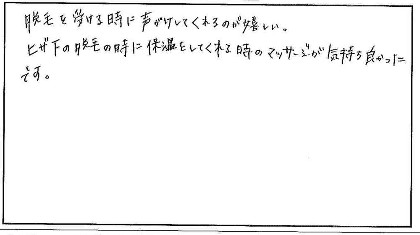 脱毛を受ける時に声がけしてくれるのが嬉しい。
ヒザ下の脱毛の時に保温をしてくれる時のマッサージが気持ち良かった
です。